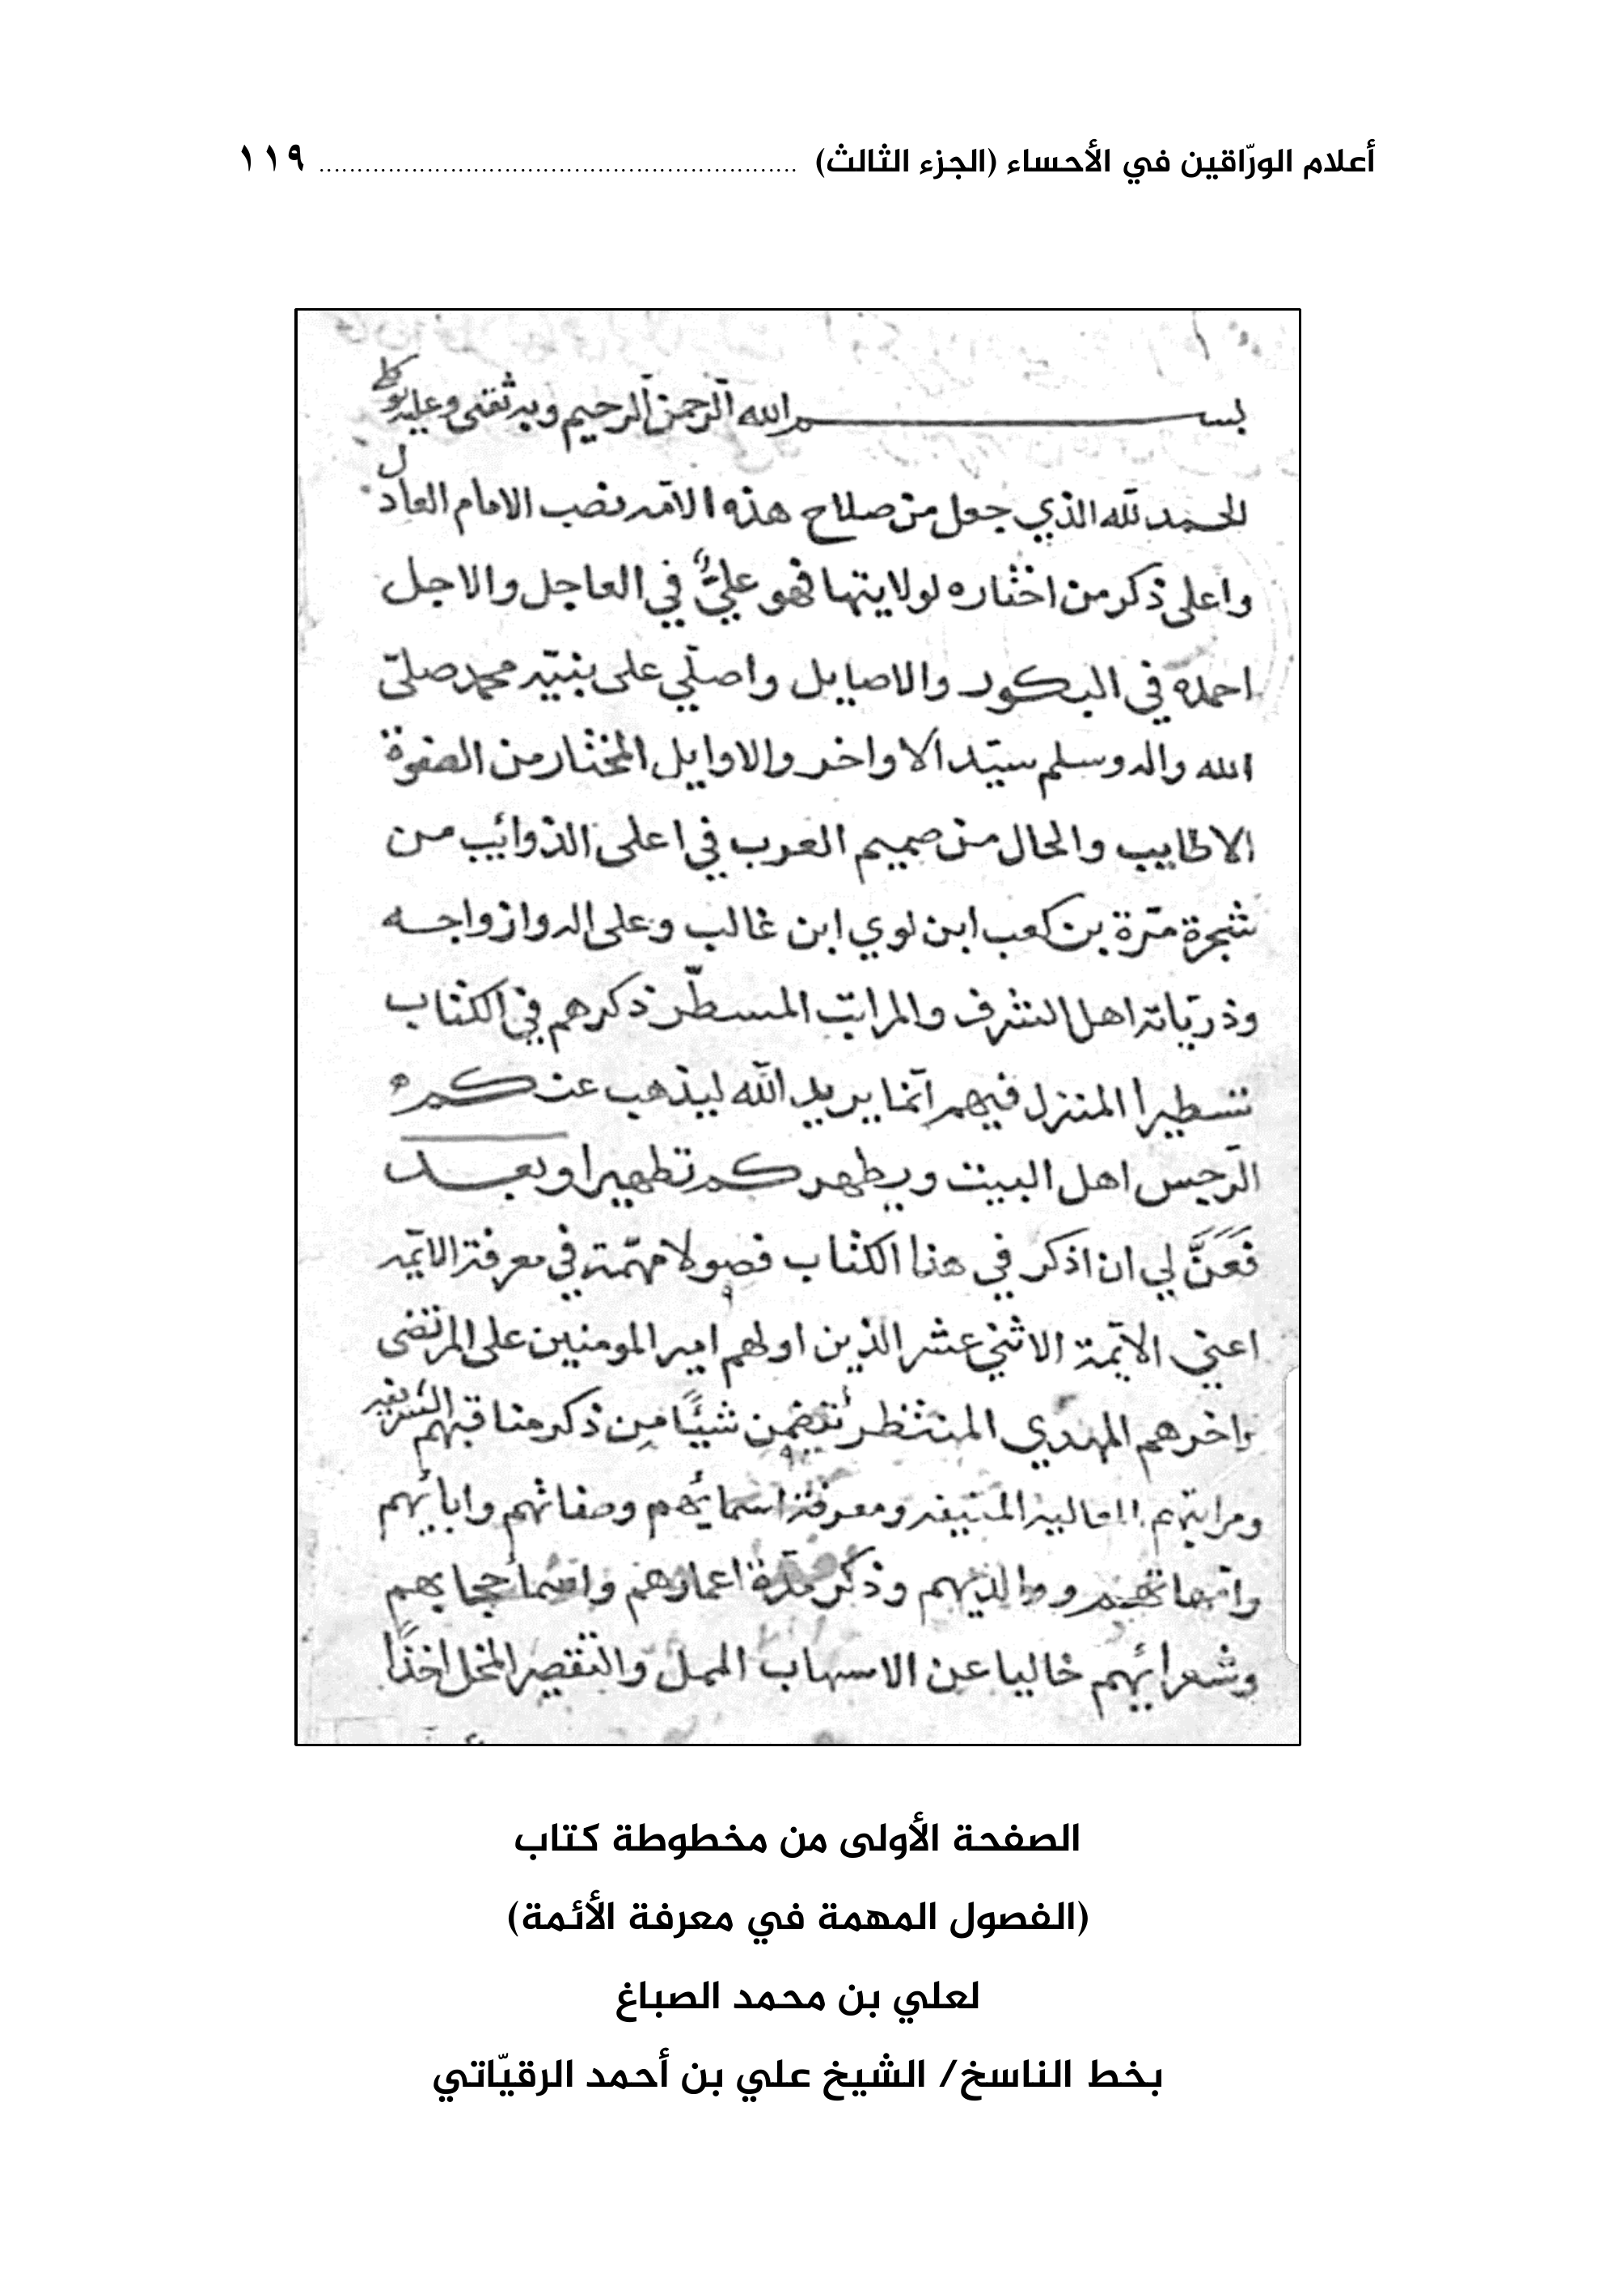 أعلام الورّاقين في الأحساء (الجزء الثالث) ............................................................. ١١٩
بسم الله الرحمن الرحيم وبه ثقتي وعليه
الحمد لله الذي جعل من صلاح هذه الامة نصب الامام العادل
واعلى ذكر من اختاره لولايتها فهو عليٌّ في العاجل والاجل
احمده في البكور والاصايل واصلّي على نبيّه محمد صلّى
الله واله وسلم سيّد الاواخر والاوايل المختار من الصفوة
الاطايب والحال من صميم العرب في اعلى الذوائب من
شجرة مرّة بن كعب ابن لوي ابن غالب وعلى اله وازواجه
وذريّاته اهل الشرف والمراتب المسطّر ذكرهم في الكتاب
تسطيرا المنزل فيهم انّما يريد الله ليذهب عنكم
الرّجس اهل البيت ويطهركم تطهيرا وبعد
فَعَنَّ لي ان اذكر في هذا الكتاب فصولا مهمّة في معرفة الائمّه
اعني الائمّة الاثني عشر الذين اولهم امير المومنين على المرتضى
واخرهم المهدي المنتظر تتضمن شيئًا من ذكر مناقبهم الشريفه
ومراتبهم العاليه المنيفه ومعرفة اسمائهم وصفاتهم وابائهم
وامهاتهم ووالديهم وذكر مدّة اعمارهم واسما حجابهم
وشعرائهم خاليا عن الاسهاب الممل والتقصير المخل اخذًا
الصفحة الأولى من مخطوطة كتاب
(الفصول المهمة في معرفة الأئمة)
لعلي بن محمد الصباغ
بخط الناسخ/ الشيخ علي بن أحمد الرقيّاتي